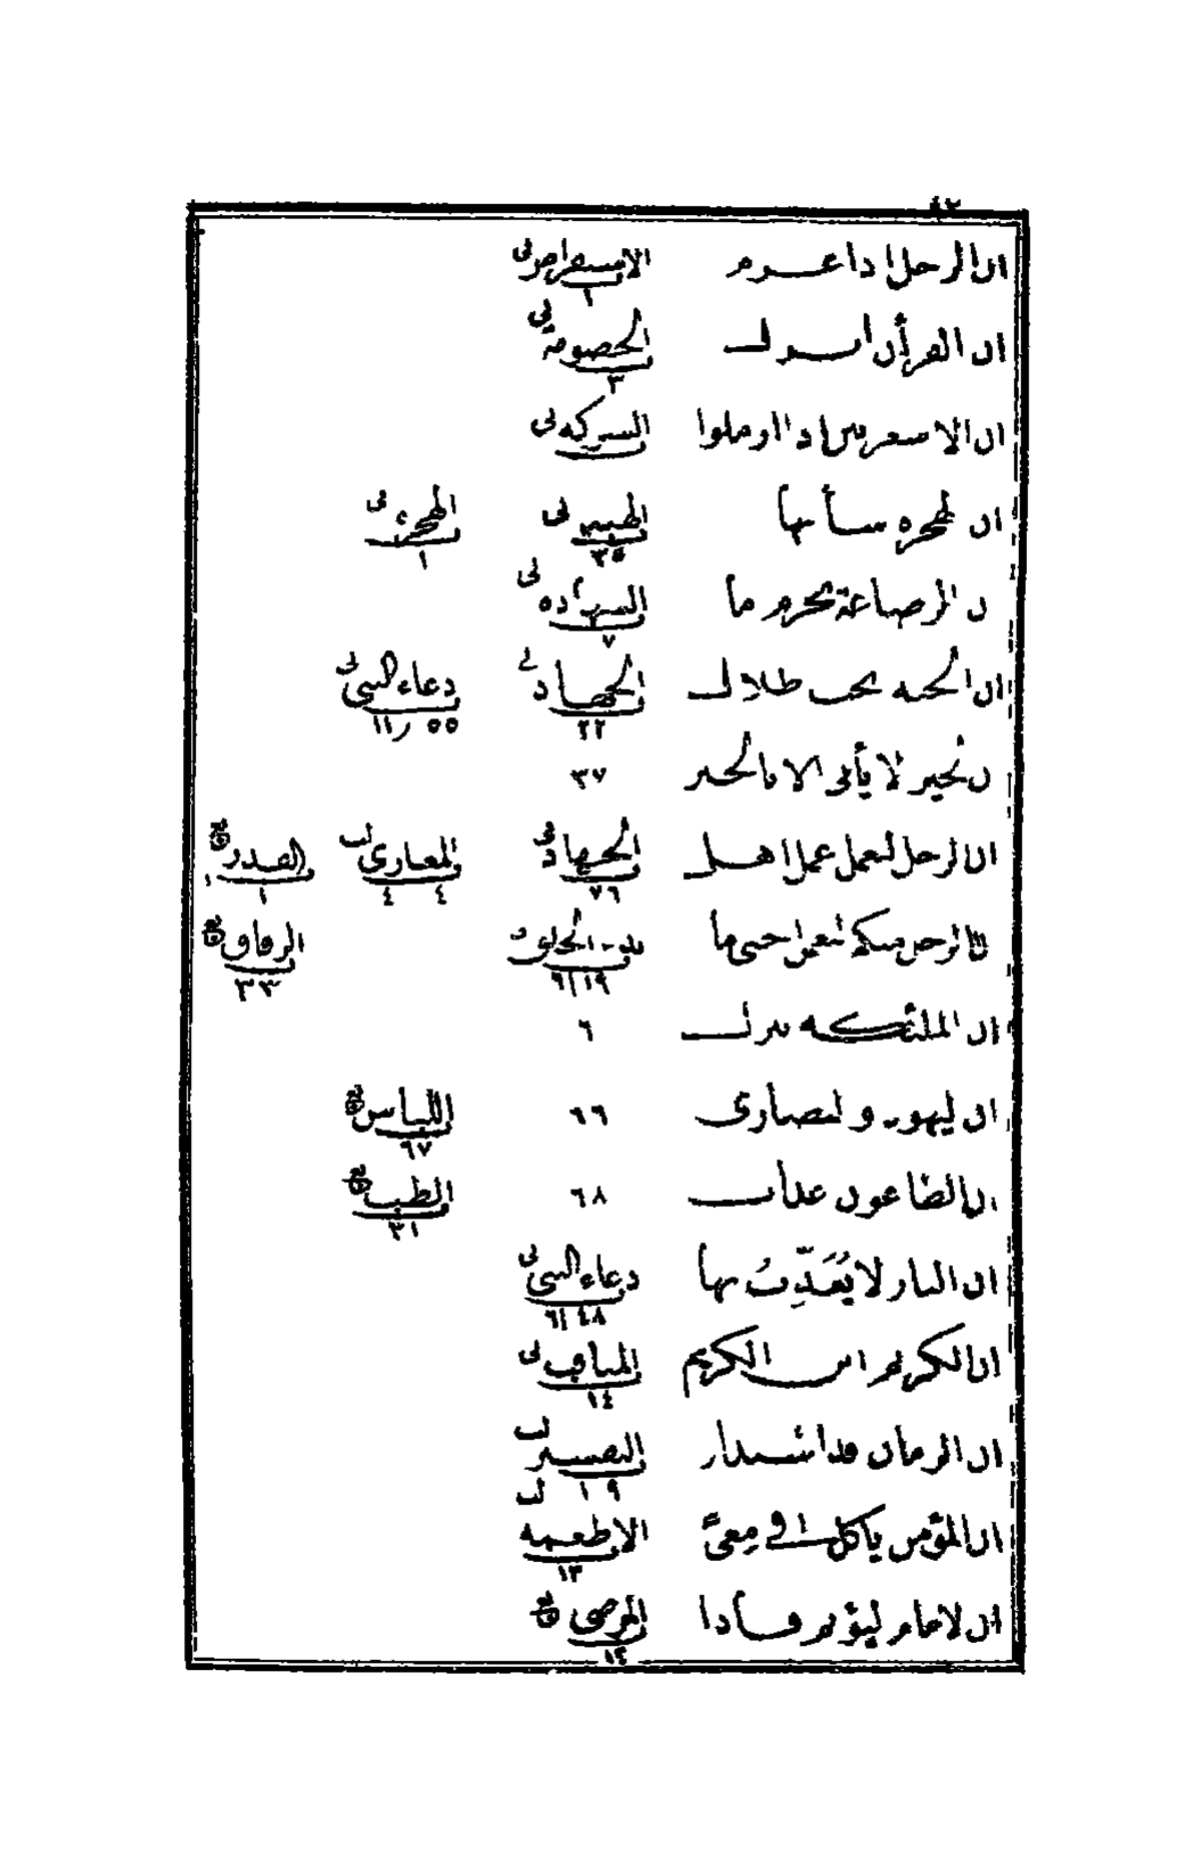 ٤٢
ان الرجل اذا غرم الاستقراض فى ١
ان القرأن انزل الخصومة فى ٣
ان الاشعريين اذا ارملوا الشركه فى
ان الهجره شأنها الهبه فى ٣٥ الهجرة فى ١
ان الرضاعة تحرم ما الشهاده فى ٧
ان الجنه تحت ظلال الجهاد فى ٢٢ دعاء النبى فى ٥٥ / ١١
ان الخير لا يأتى الا بالخير ٣٧
ان الرجل ليعمل عمل اهل الجهاد فى ٧٦ المغازى ٤ ٤ القدر ١
ان الرجل منكم ليعمل حتى ما بدء الخلق فى ٦/١٩ الرقاق ٣٣
ان الملئكه تنزل ٦
ان اليهود و النصارى ٦٦ اللباس ٦٧
ان الطاعون عذاب ٦٨ الطب ٣١
ان النار لا يُعَذِّبُ بها دعاء النبى فى ٤٨ / ٦
ان الكريم ابن الكريم المناقب فى ١٤
ان الزمان قد استدار التفسير ١ ٩
ان المؤمن يأكل فى مِعىً الاطعمه ١٣
ان الامام ليؤتم فأذا المرضى ١٢